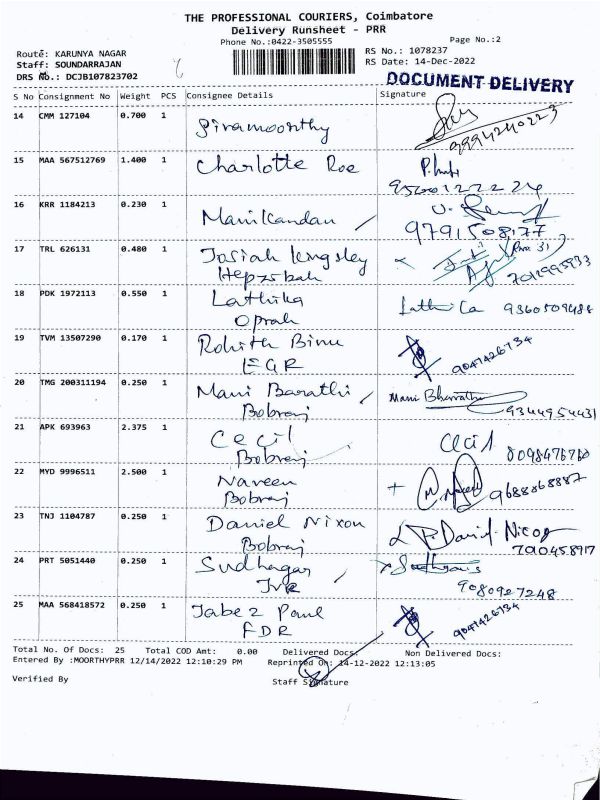 THE PROFESSIONAL COURIERS, Coimbatore
Delivery Runsheet - PRR
Phone No.:0422-3505555
Page No.:2
Route: KARUNYA NAGAR
RS No.: 1078237
Staff: SOUNDARRAJAN
RS Date: 14-Dec-2022
DRS No.: DCJB107823702
DOCUMENT DELIVERY
S No Consignment No Weight PCS Consignee Details Signature
14 CMM 127104 0.700 1 Piramoorthy
9994240223
15 MAA 567512769 1.400 1 Charlotte Roe
16 KRR 1184213 0.230 1 Manikandan
9791508177
17 TRL 626131 0.480 1 Josiah kingsley
Hepzibah
18 PDK 1972113 0.550 1 Lathika Lathika 9360509488
Oprah
19 TVM 13507290 0.170 1 Rohith Binu
EGR 9047426734
20 TMG 200311194 0.250 1 Mani Barathi Mani Bharathi
Bobraj 9344954431
21 APK 693963 2.375 1 Cecil Cecil
Bobraj 8098476760
22 MYD 9996511 2.500 1 Naveen
Bobraj 9688868887
23 TNJ 1104787 0.250 1 Daniel Nixon
Bobraj
24 PRT 5051440 0.250 1 Sudhagar
JVR 9080927248
25 MAA 568418572 0.250 1 Jabez Paul
FDR 9047426734
Total No. Of Docs: 25 Total COD Amt: 0.00 Delivered Docs: Non Delivered Docs:
Entered By :MOORTHYPRR 12/14/2022 12:10:29 PM Reprinted On: 14-12-2022 12:13:05
Verified By Staff Signature